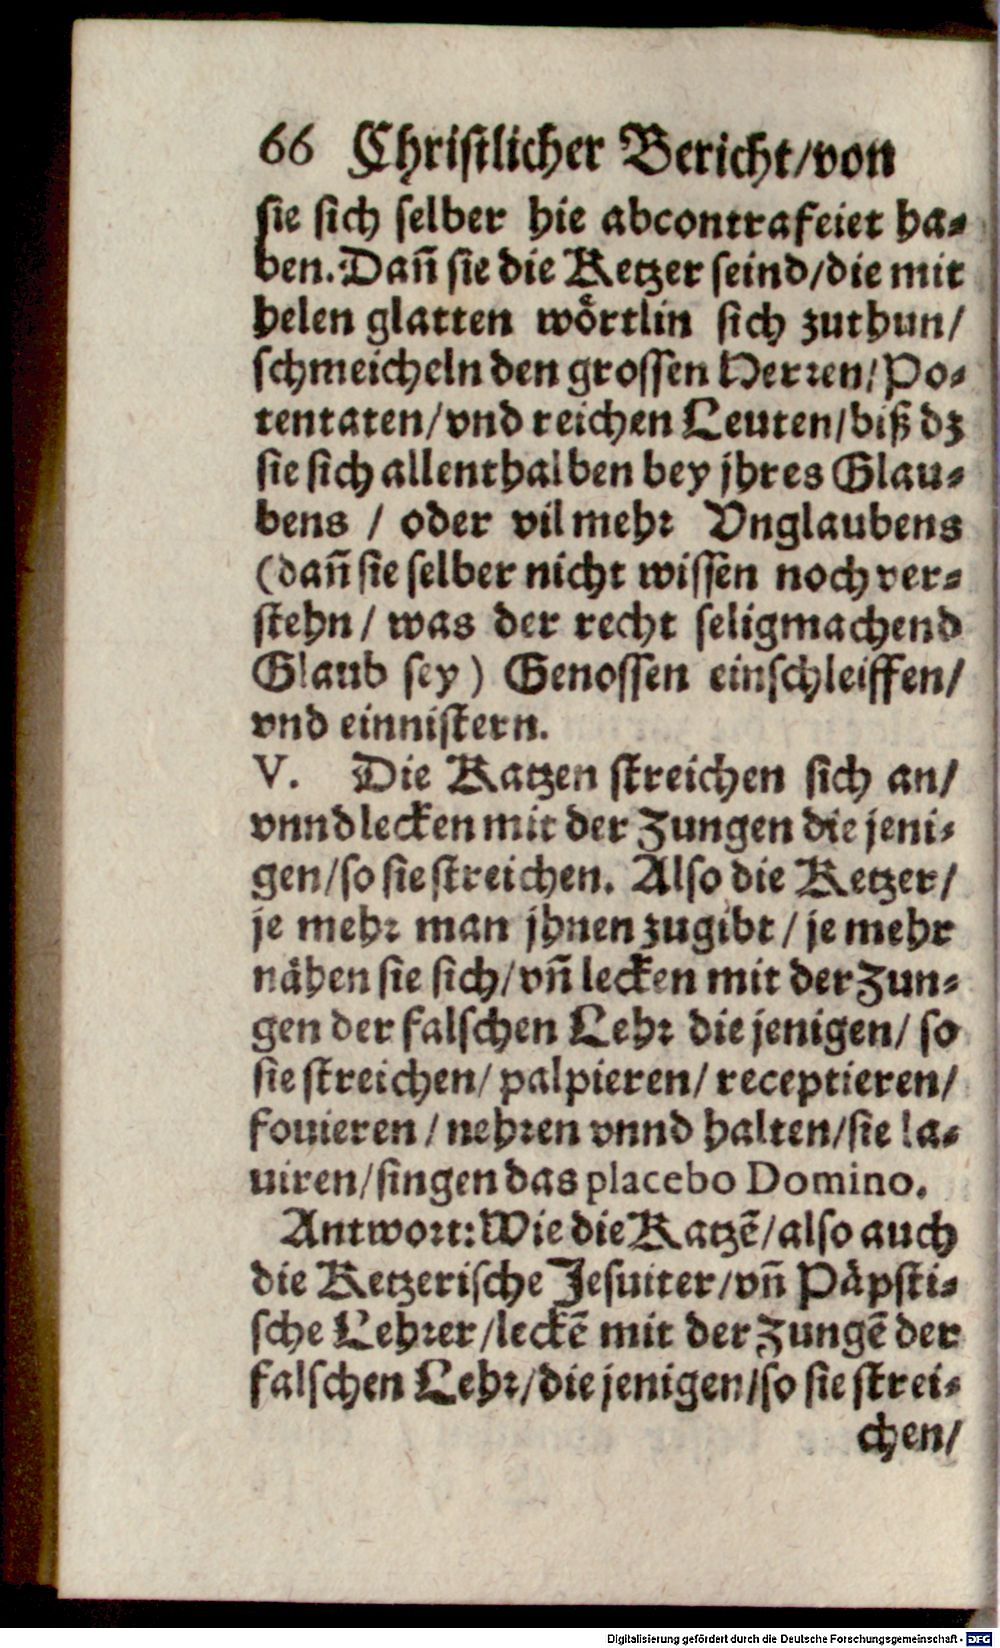 66 Christlicher Bericht/von
sie sich selber hie abcontrafeiet ha⸗
ben. Dañ sie die Ketzer seind/die mit
helen glatten woͤrtlin sich zuthun/
schmeicheln den grossen Herꝛen/Po⸗
tentaten/vnd reichen Leuten/biß dz
sie sich allenthalben bey jhres Glau⸗
bens / oder vil mehꝛ Vnglaubens
(dañ sie selber nicht wissen noch ver⸗
stehn/ was der recht seligmachend
Glaub sey) Genossen einschleiffen/
vnd einnistern.
V. Die Katzen streichen sich an/
vnnd lecken mit der Zungen die jeni⸗
gen/so sie streichen. Also die Ketzer/
je mehꝛ man jhnen zugibt/ je mehr
nähen sie sich/vñ lecken mit der Zun⸗
gen der falschen Lehꝛ die jenigen/ so
sie streichen/ palpieren/ receptieren/
fouieren / nehꝛen vnnd halten/sie la⸗
uiren/singen das placebo Domino.
Antwoꝛt: Wie die Katzẽ/also auch
die Ketzerische Jesuiter/vñ Päpsti⸗
sche Lehꝛer/leckẽ mit der Zungẽ der
falschen Lehꝛ/die jenigen/so sie strei⸗
chen/
Digitalisierung gefördert durch die Deutsche Forschungsgemeinschaft - DFG